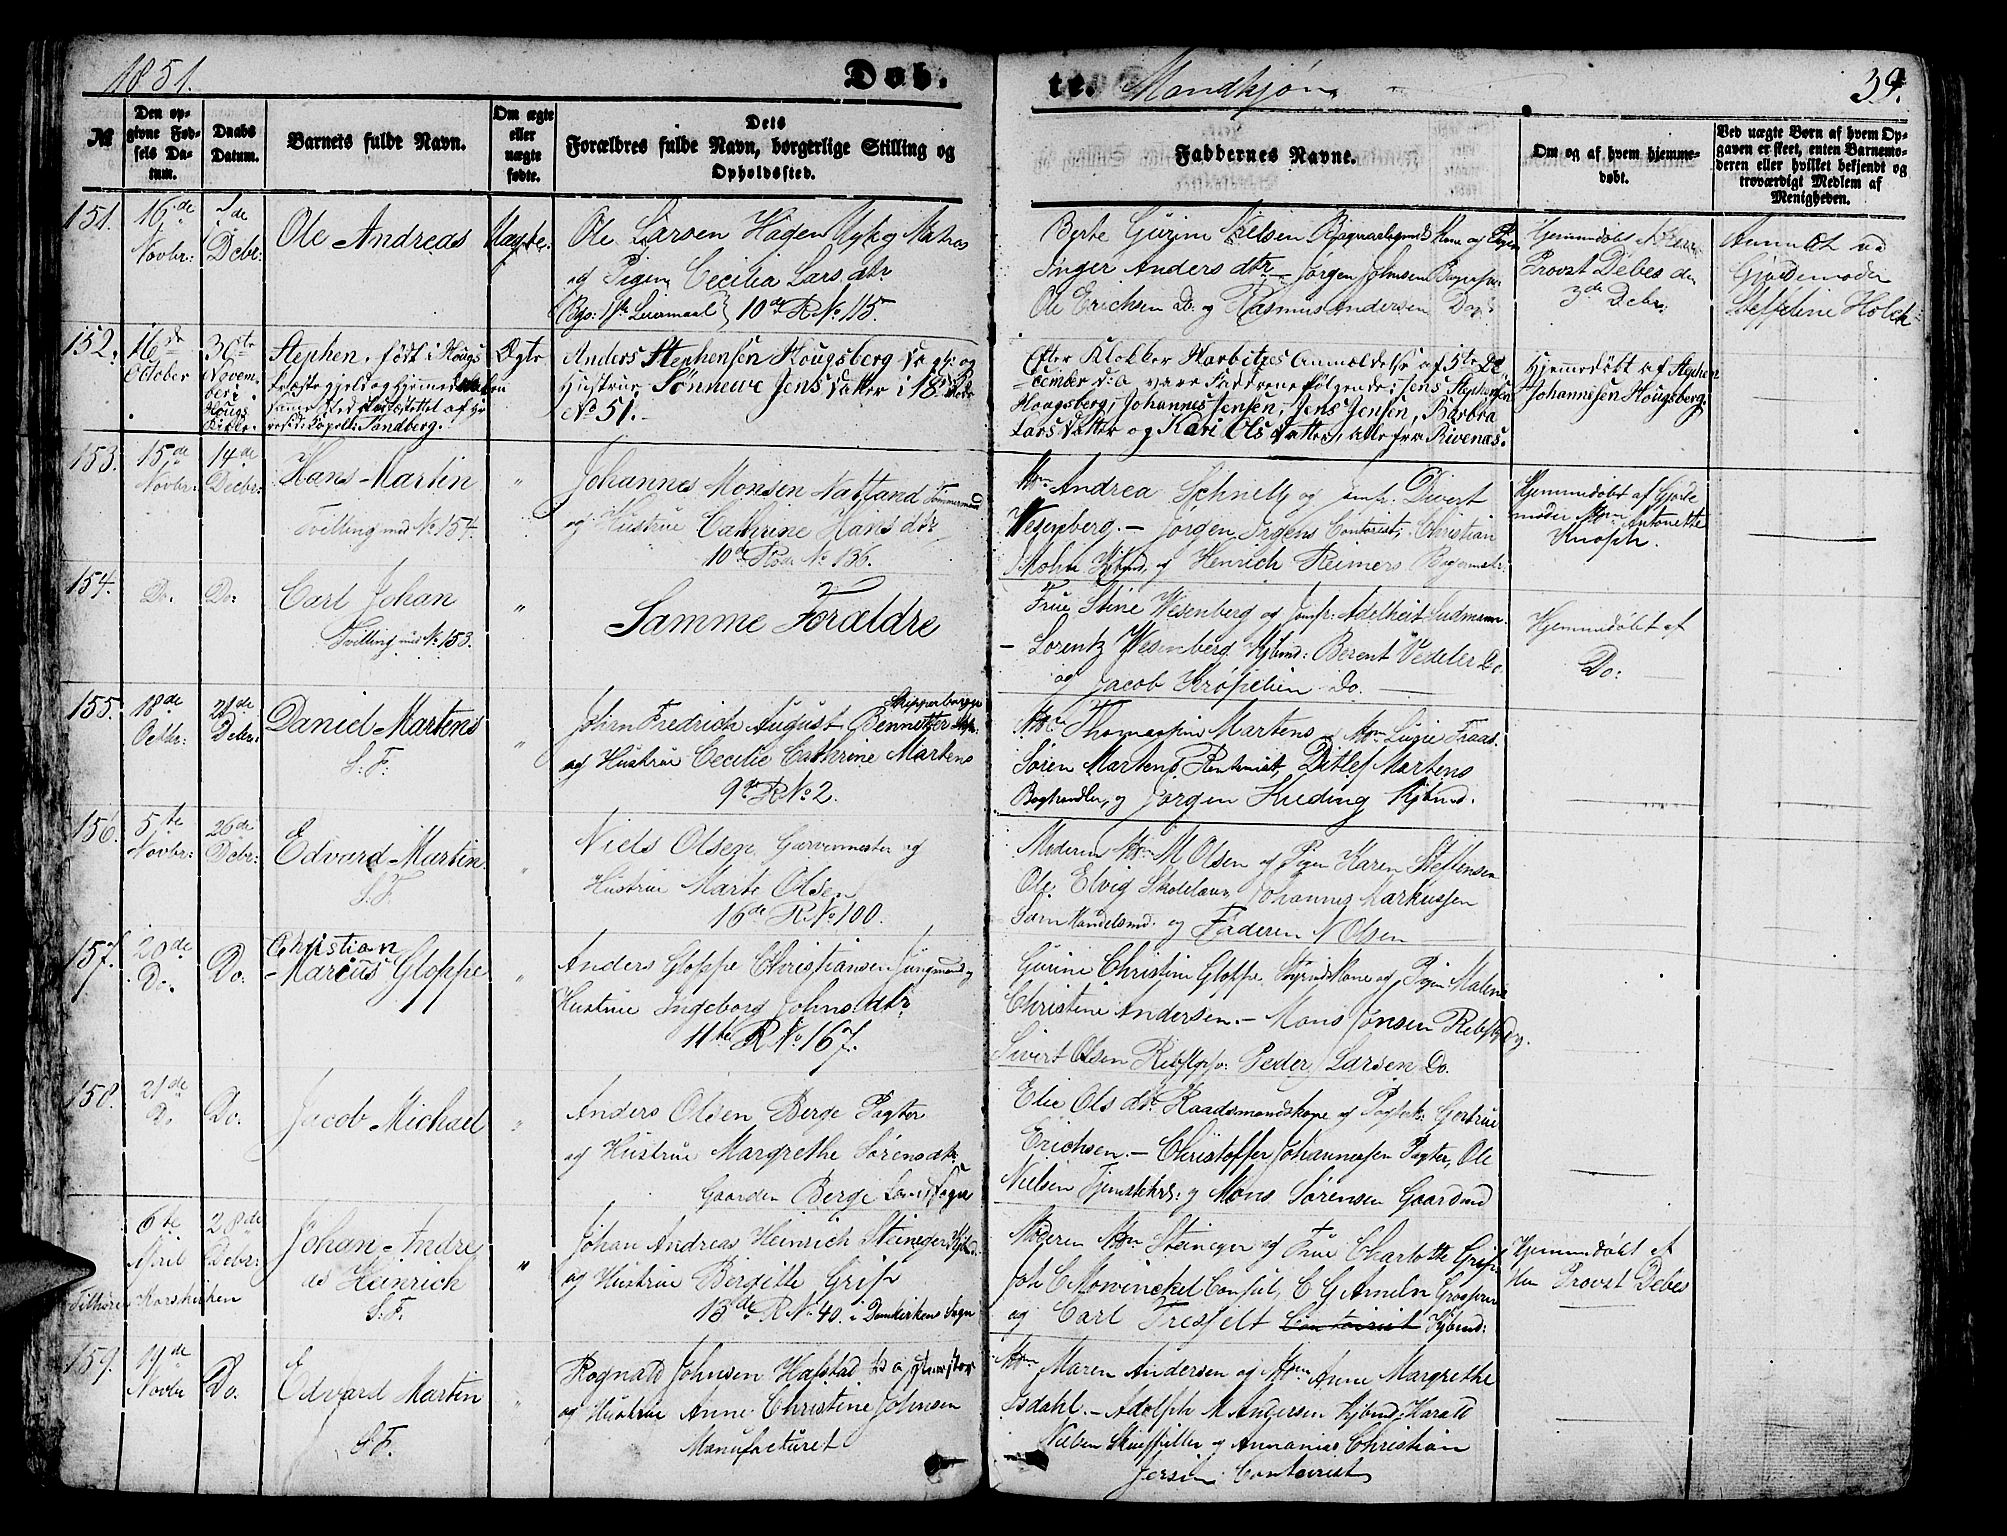 1851.
Døb.
te. Mandkjøn
39.
№
Den op-
givne Fød-
sels Da-
tum.
Daabs
Datum.
Barnets fulde Navn.
Om ægte
eller
uægte
fødte.
Dets
Forældres fulde Navn, borgerlige Stilling og
Opholdssted.
Faddernes Navne.
Om og af hvem hjemme-
døbt.
Ved uægte Børn af hvem Op-
gaven er skeet, enten Barnemo-
deren eller hvilket bekjendt og
troværdigt Medlem af
Menigheden.
151.
16de
Novbr:
Debr:
Ole Andreas
Uægte.
Ole Larsen Hagen Matros
og Pigen Cecilia Larsdtr
Leiermaal 10de R No 115.
Berte Gurine Nielsen Kone og Pigen
Inger Andersdtr – Jørgen Johnsen
Ole Erichsen Do. og Rasmus Andersen
Hjemmedøbt af Herr
Provst Debes den
3de Debr.
Anmeldt ved
Gjordemoder
Steffeline Holck
152.
16de
October
30te
Novem-
ber
Hougs
Kirke.
Stephen. født i Hougs
Præstegjeld og hjemmedøbt
sammesteds af
Capell: Sandberg.
Ægte
Anders Stephensen Hougsberg og
Hustrue Sønneve Jensdatter i 18de Rode
No 51.
Efter Klokker Harbitzes Anmeldelse af 5te De-
cember d: a. vare Faddrene følgende: Jens Stephensen
Hougsberg, Johannes Jensen, Jens Jensen, Barbra
Larsdatter og Kari Olsdatter, alle fra Rivenæs.
Hjemmedøbt af Stephen
Johannesen Hougsberg.
153.
15de
Novbr:
14de
Decbr:
Hans Martin
Tvilling med No 154.
"
Johannes Monsen Natland Tømmermand
og Hustrue Cathrine Hansdtr
10de Rode No 136.
Mdm Andrea Schnell og Jomfr. Divert
Wesenberg. – Jørgen Irgens Contorist, Christian
Mohn Kjbmd, og Henrich Reimers Bagermstr.
Hjemmedøbt af Gjorde
moder Mdm Antonette
Knoph.
154.
Do.
Do:
Carl Johan
Tvilling med No 153.
"
Samme Forældre
Frue Stine Wesenberg og Jomfr. Adelheit
– Lorentz Wesenberg Kjbmd: Berent Vedeler Do.
og Jacob Kröpelien Do.
Hjemmedøbt af
Do:
155.
18de
Octbr:
21de
Debr:
Daniel Martens
S: F:
"
Skipperborger
Fredrich August Bennetter
og Hustrue Cecilie Cathrine Martens
9de R No 2.
Mdm Martens, Mdm Lucie Fraas.
Søren Martens Rentenist, Ditlef Martens
Boghandler, og Jørgen Kjbmd.
156.
5te
Novbr:
26de
Debr:
Edvard Martin
S. F.
"
Niels Olsen Garvermester og
Hustrue Marte Olsen
16de R No 100.
Moderen Mdm M Olsen og Pigen Karen Steffensen
Ole Elvig Johannes Markussen
Handelsmd. og Faderen N Olsen
157.
20de
Do.
Do:
Christian
Marcus Gloppe
"
Anders Gloppe Christiansen Jungmand og
Hustrue Ingeborg Johnsdtr
11te R No 167.
Gurine Christine Gloppe, Kone og Pigen Malene
Christine Andersen. – Mons Jonsen
Sivert Olsen Peder Larsen Do.
158.
21de
Do
Do:
Jacob Michael
"
Anders Olsen Berge Pagter
og Hustrue Margrethe Sørensdtr.
Gaarden Berge Landsogn
Elie Olsdtr. Kone og Gertrue
Erichsen. – Christoffer Johannesen Pagter, Ole
Nielsen Tjenestekrl: og Mons Sørensen Gaardmd
6te
April
28de
Debr:
Tilhører Korskirken
Johan Andre
as Heinrich
S: F.
"
Johan Andreas Heinrich Steineger Kjbmd:
og Hustrue Bergitte Grip
13de R No 40. i Domkirkens Sogn
Moderen Mdm Steineger og Frue Charlotte Grip
Joh E Mowinckel Consul, C G Ameln
og Carl Tresselt Contoirist Kjbmd:
Hjemmedøbt af
Hr Provst Debes
159.
19de
Novbr
Do:
Edvard Martin
S F.
"
Rognald Johnsen Hafstad
og Hustrue Anne Christine Johnsen
Manufacturet
Mdm Maren Andersen og Mdm Anne Margrethe
Isdahl. – Adolph M Andersen Kjbmd, Harald
Nielsen og Annanias Christian
Contoirist